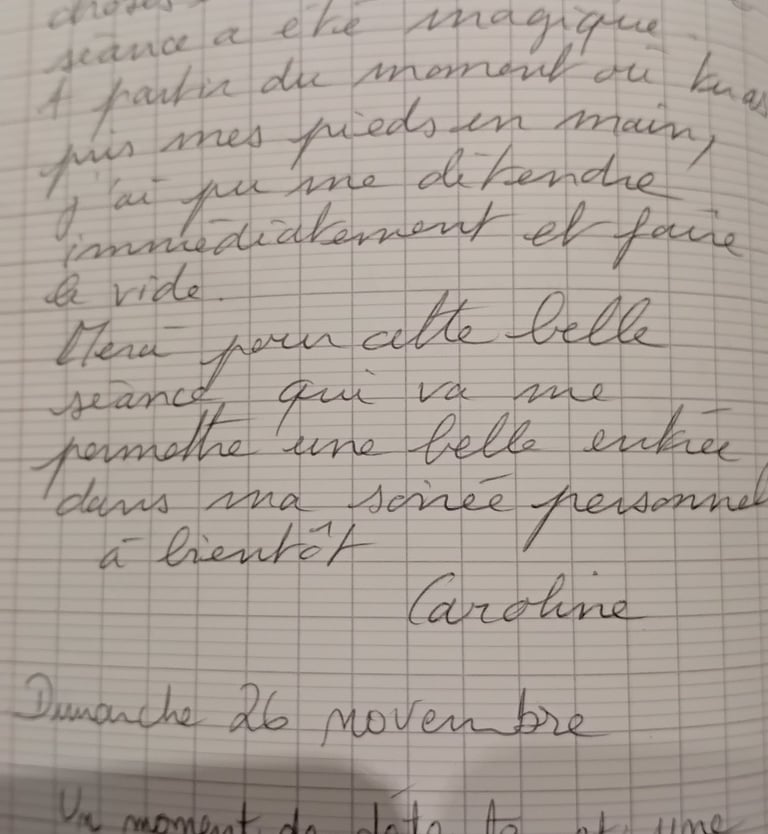 choses
séance a été magique.
A partir du moment où tu as
pris mes pieds en main,
j'ai pu me détendre
immédiatement et faire
le vide.
Merci pour cette belle
séance, qui va me
permettre une belle entrée
dans ma soirée personnel
à bientôt
Caroline
Dimanche 26 novembre
Un moment de et une